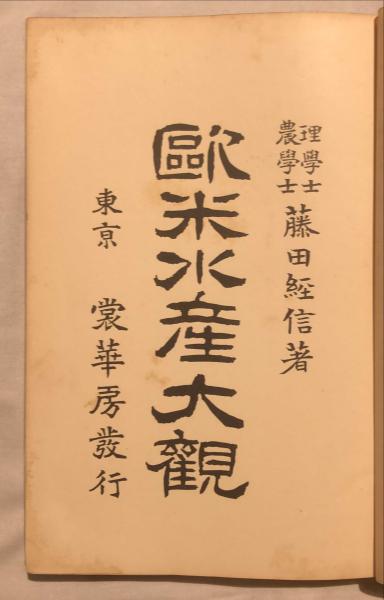 理學士
農學士
藤田經信著
歐米水產大觀
東京 裳華房發行